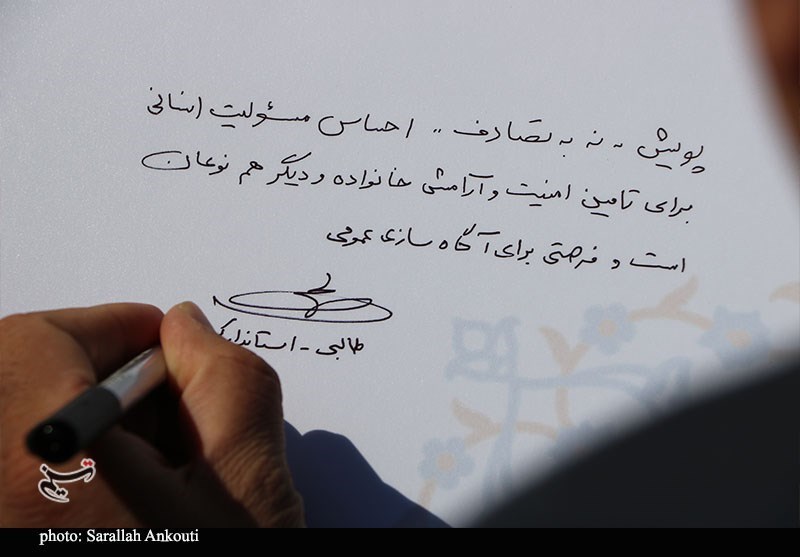 پویش " نه به تصادف " احساس مسئولیت انسانی
برای تامین امنیت و آرامش خانواده و دیگر هم نوعان
است و فرصتی برای آگاه سازی عمومی
طالبی - استاندار
تسنیم
photo: Sarallah Ankouti